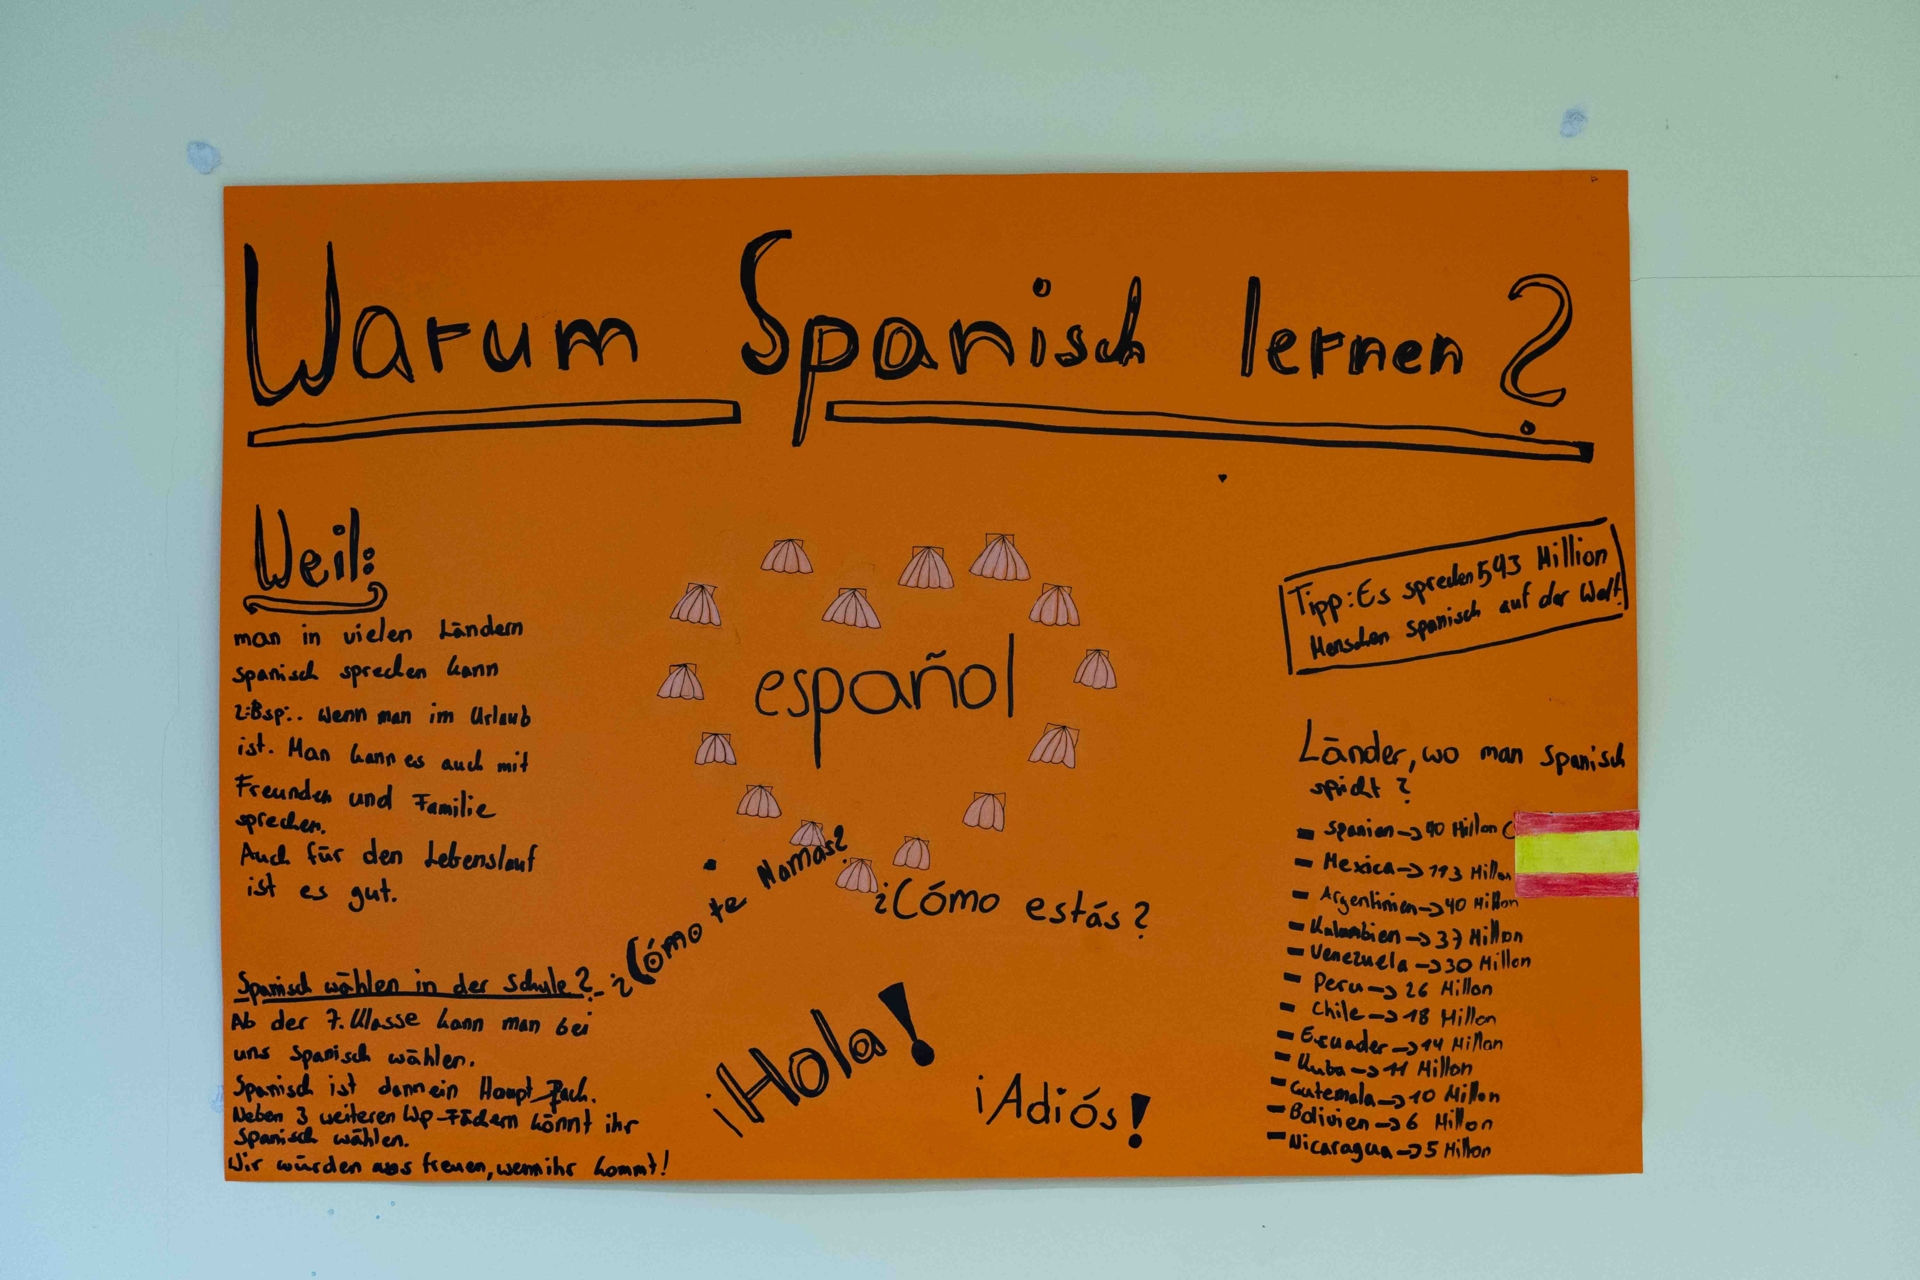 Warum Spanisch lernen?
Weil:
man in vielen Ländern
spanisch sprechen kann
z.Bsp.. Wenn man im Urlaub
ist. Man kann es auch mit
Freunden und Familie
sprechen.
Auch für den Lebenslauf
ist es gut.
Spanisch wählen in der Schule?
Ab der 7. Klasse kann man bei
uns Spanisch wählen.
Spanisch ist dann ein Haupt-Fach.
Neben 3 weiteren Wp-Fächern könnt ihr
Spanisch wählen.
Wir würden uns freuen, wenn ihr kommt!
español
¿Cómo te llamas?
¿Cómo estás?
¡Hola!
¡Adiós!
Tipp: Es sprechen 593 Million
Menschen spanisch auf der Welt!
Länder, wo man Spanisch
spricht?
- Spanien → 40 Millon
- Mexica → 113 Millon
- Argentinien → 40 Millon
- Kulumbien → 37 Millon
- Venezuela → 30 Millon
- Peru → 26 Millon
- Chile → 18 Millon
- Ecuador → 14 Millon
- Kuba → 11 Millon
- Gutemala → 10 Millon
- Bolivien → 6 Millon
- Nicaragua → 5 Millon